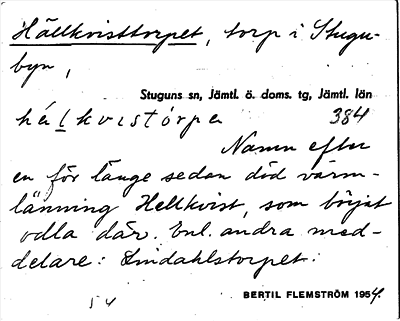 Hällkvisttorpet, torp i Stugu-
byn,
Stuguns sn, Jämtl. ö. doms. tg, Jämtl. län
hälkvistórpe 384
Namn efter
en för länge sedan död värm-
länning Hellkvist, som börjat
odla där. Enl. andra med-
delare: Lindahlstorpet.
54 BERTIL FLEMSTRÖM 1954.